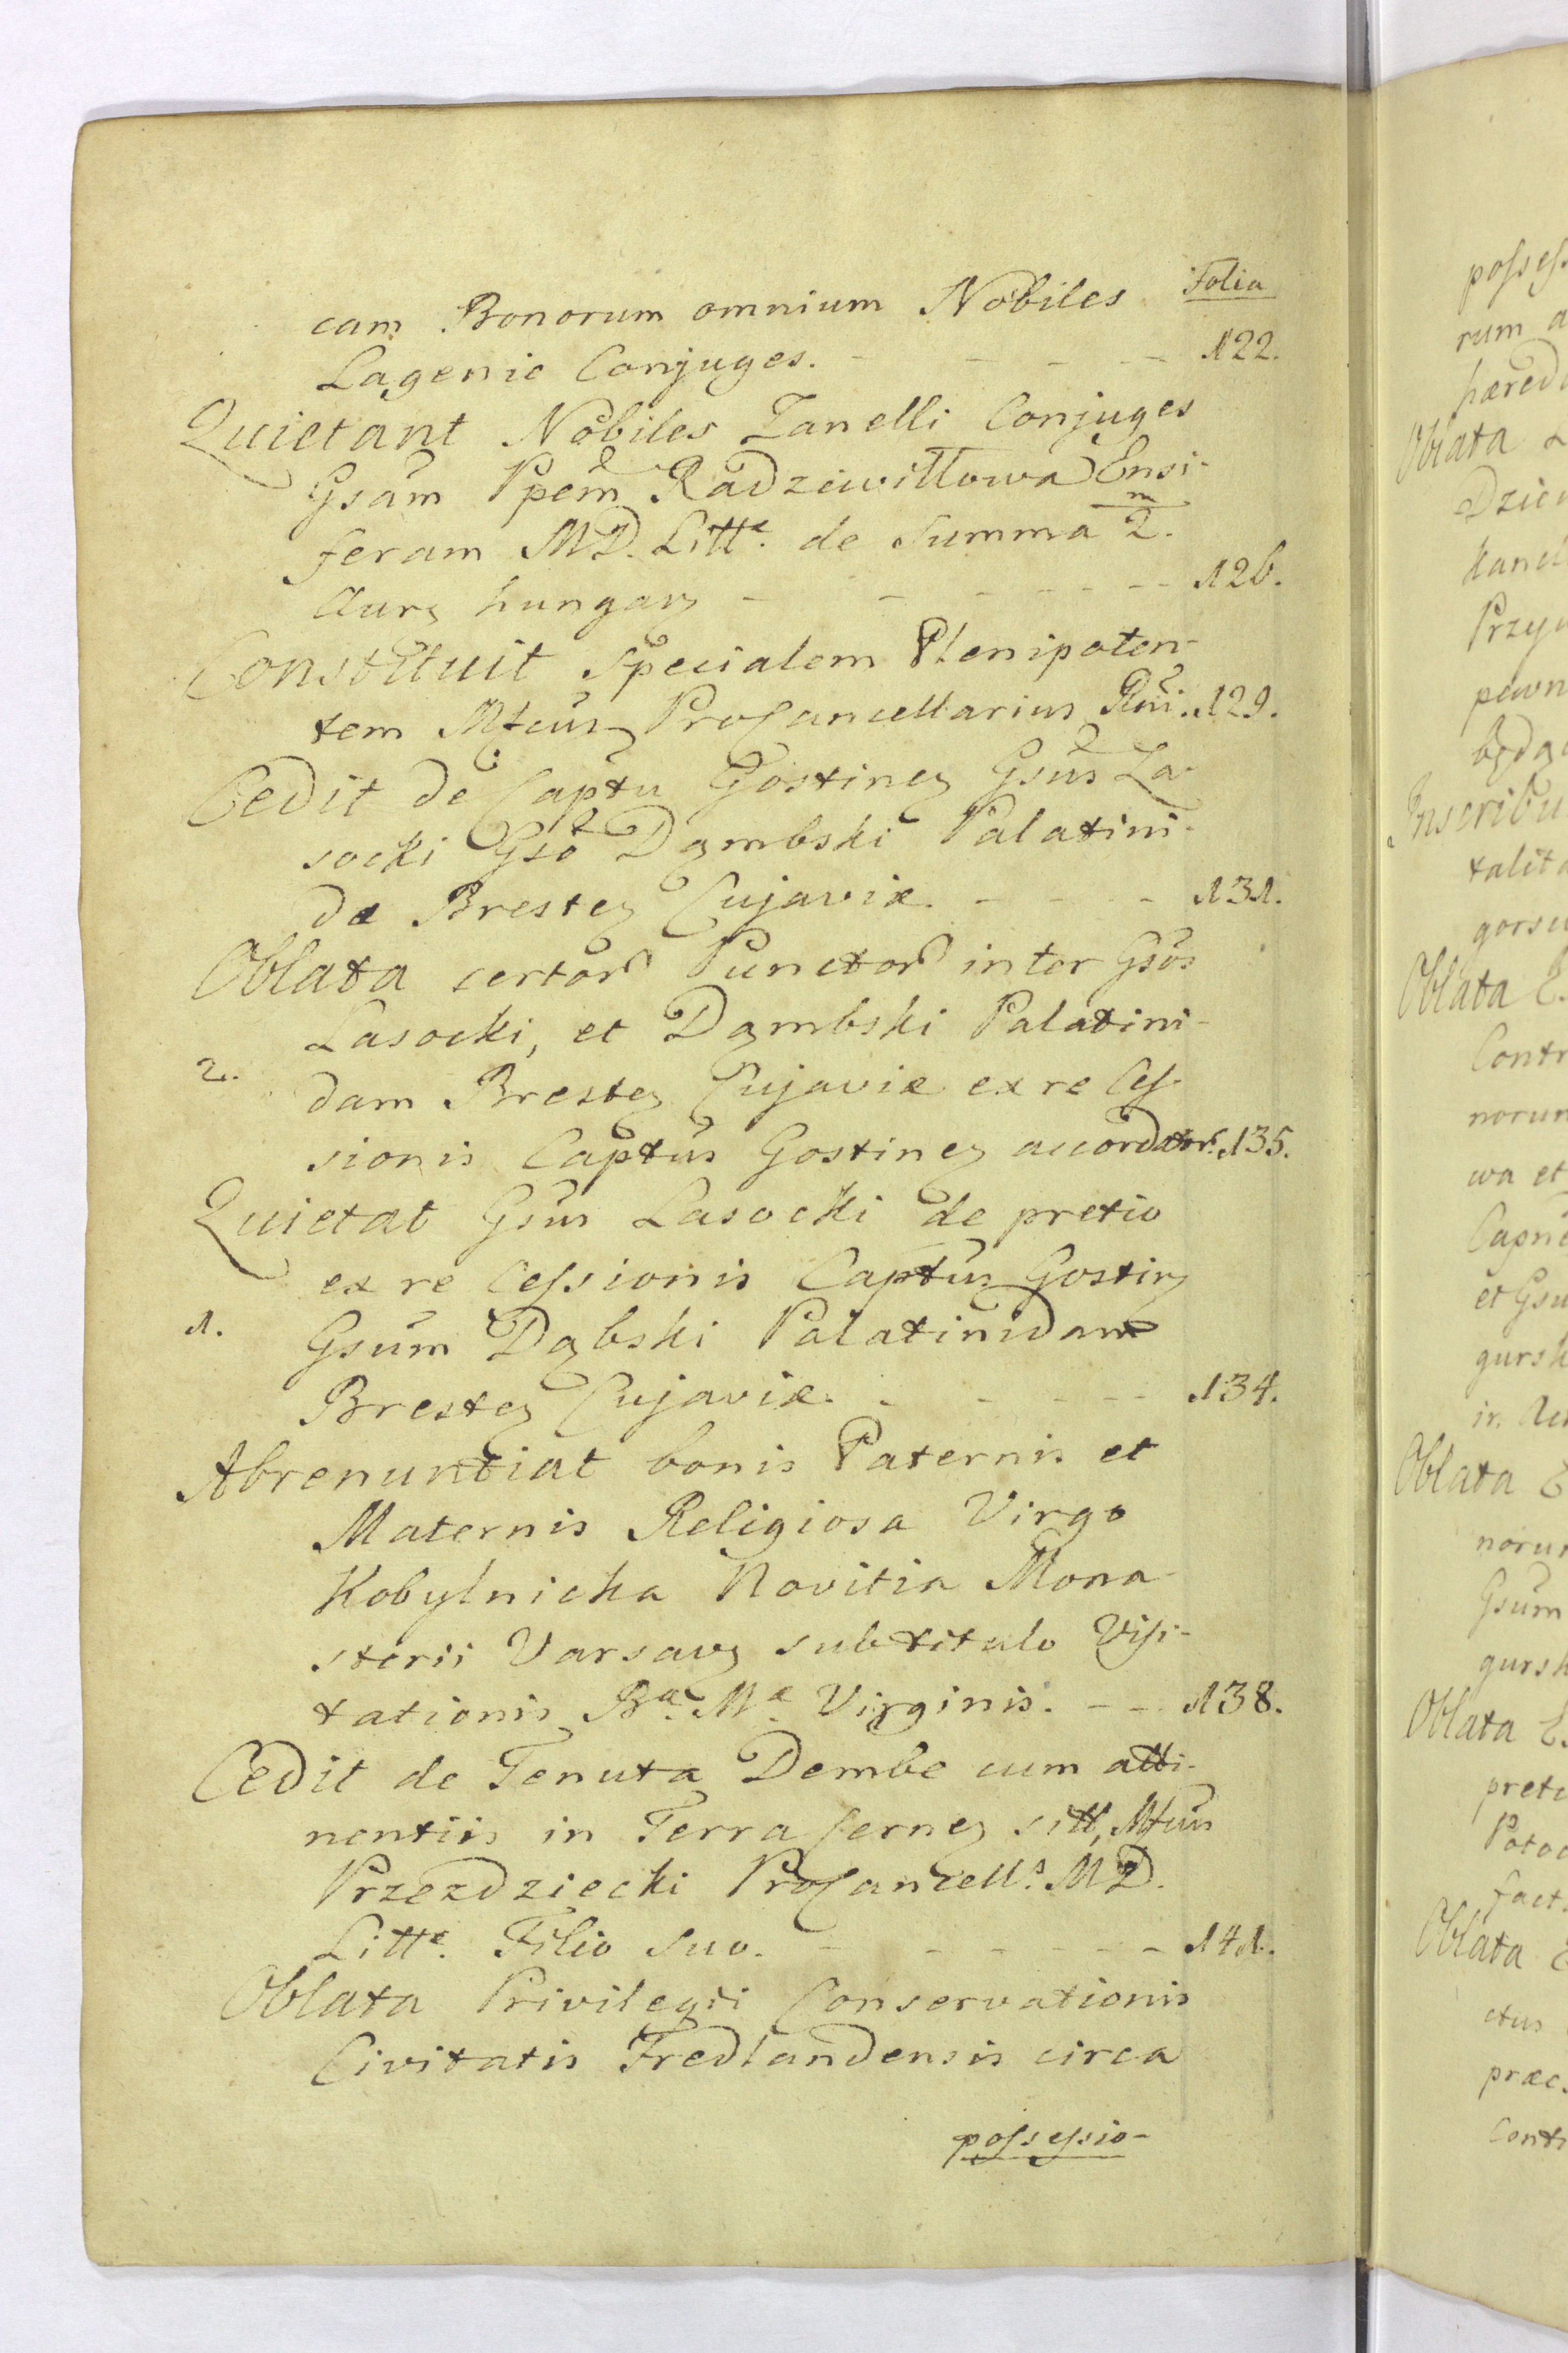 Folia
cam Bonorum omnium Nobiles
Lagenie Conjuges. - - - - 122.
Quietant Nobiles Zanelli Conjuges
Gsam Ppem Radziwiłłowa Ensi-
feram M D. Littæ. de Summa 2.
m
Aurę hungarę - - - - - 126.
Constituit Specialem Plenipoten-
tem Mfcus ProCancellarius Rni. 129.
Cedit de Captu Gostineę Gsus La-
socki Gso Dąmbski Palatini-
dæ Bresteę Cujaviæ. - - - 131.
Oblata certor Punctor inter Gsos
Lasocki, et Dąmbski Palatini-
2. dam Bresteę Cujaviæ ex re Ces-
sionis Captus Gostineę accordator. 135.
Quietat Gsus Lasocki de pretio
ex re Cessionis Captus Gostinę
1. Gsum Dąbski Palatinidam
Bresteę Cujaviæ. - - - - 134.
Abrenuntiat bonis Paternis et
Maternis Religiosa Virgo
Kobylnicka Novitia Mona-
sterii Varsavę sub titulo Visi-
tationis Bæ. Mæ. Virginis. - - 138.
Cedit de Tenuta Dembe cum atti-
nentiis in Terra Cerneę sitt, Mfcus
Przezdziecki ProCancells. M D.
Littæ. Filio Suo. - - - - - 141.
Oblata Privilegii Conservationis
Civitatis Fredlandensis circa
possessio-
possess
rum a
hæred
Oblata
Dzien
Przy
pewn
będą
Inscribu
talit
Oblata
Contr
norum
wa et
et Gsu
gursk
Oblata
norum
Gsum
gursk
Oblata
preti
Potoc
fact.
Oblata
ctus
præ
Contr